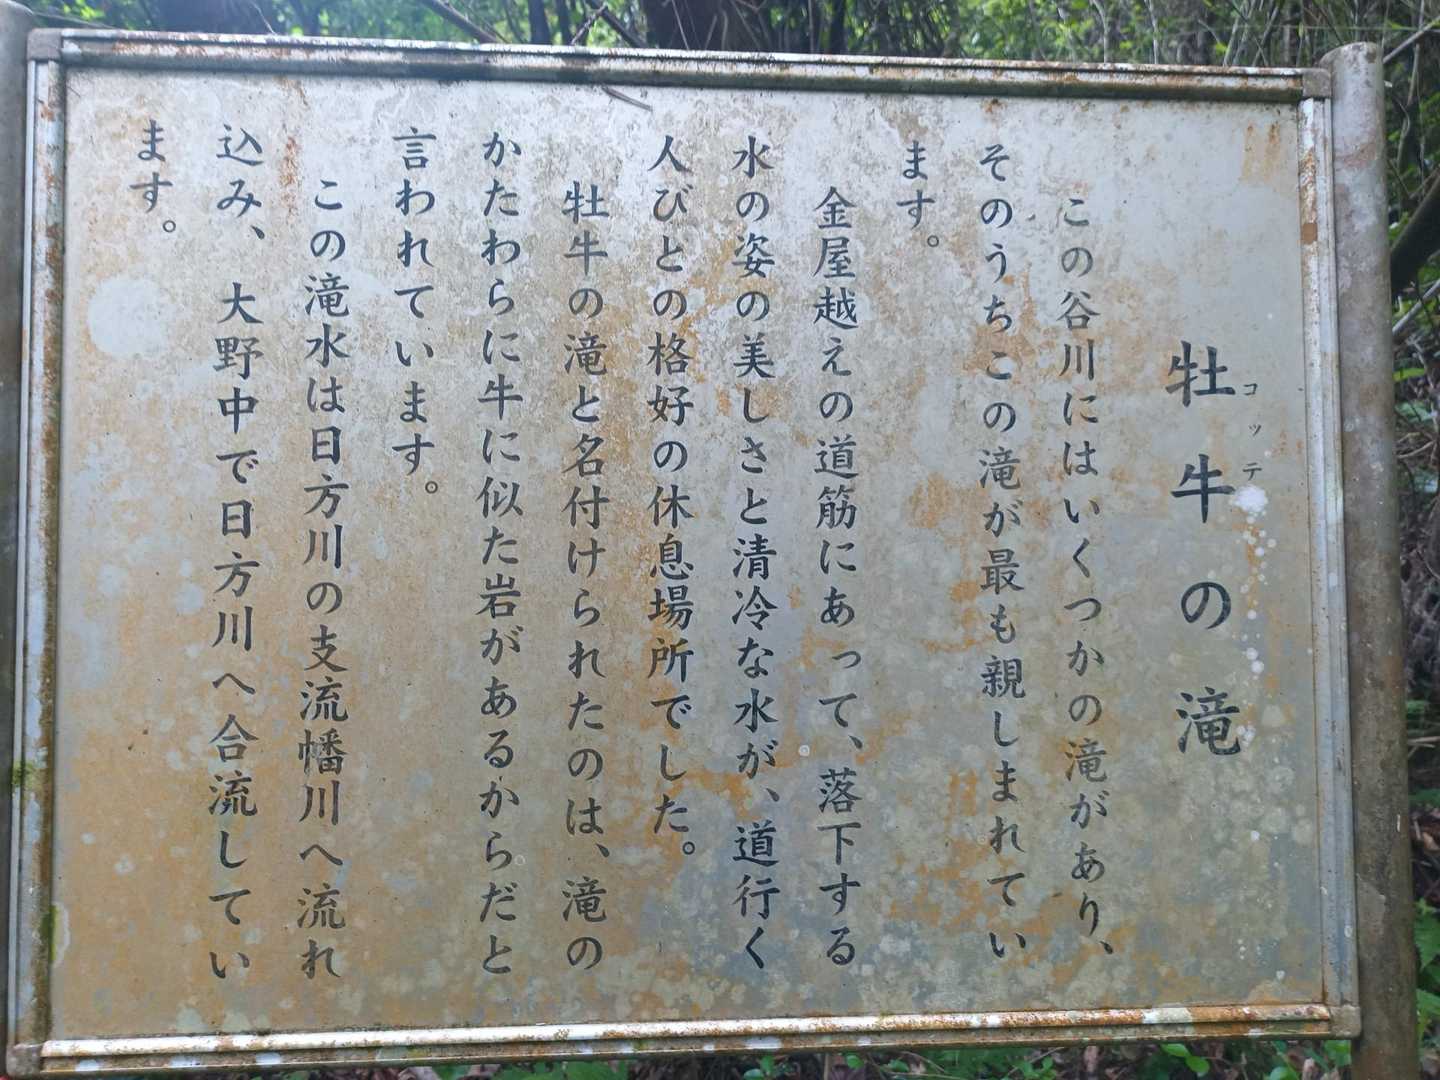 牡牛の滝
コッテ
この谷川にはいくつかの滝があり、
そのうちこの滝が最も親しまれてい
ます。
金屋越えの道筋にあって、落下する
水の姿の美しさと清冷な水が、道行く
人びとの格好の休息場所でした。
牡牛の滝と名付けられたのは、滝の
かたわらに牛に似た岩があるからだと
言われています。
この滝水は日方川の支流幡川へ流れ
込み、大野中で日方川へ合流してい
ます。